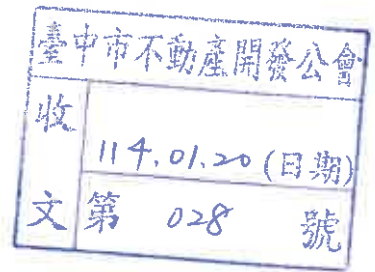 臺中市不動產開發公會
收文
114.01.20(日期)
第 028 號